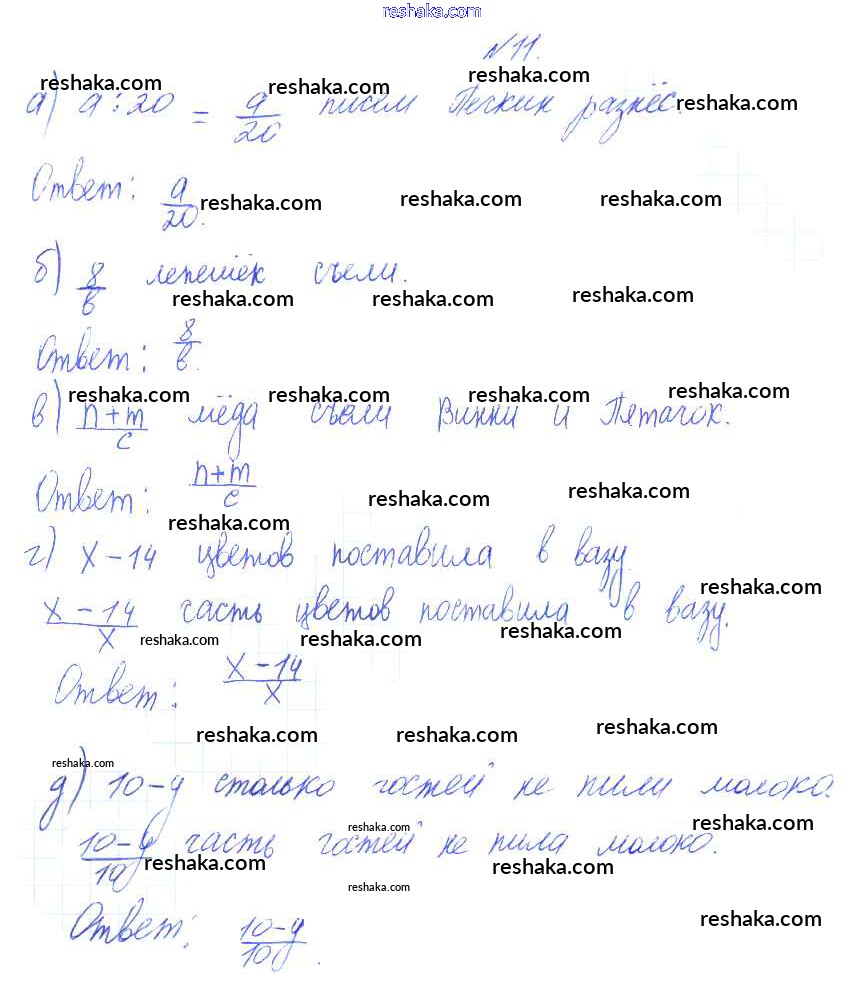 reshaka.com
№11.
reshaka.com reshaka.com reshaka.com reshaka.com
а) a : 20 = a/20 писем Печкин разнёс.
Ответ: a/20.
reshaka.com reshaka.com reshaka.com
б) 8/b лепешек съели.
reshaka.com reshaka.com reshaka.com
Ответ: 8/b.
reshaka.com reshaka.com reshaka.com reshaka.com
в) n+m/c мёда съели Винни и Пятачок.
Ответ: n+m/c
reshaka.com reshaka.com reshaka.com
г) x-14 цветов поставила в вазу.
reshaka.com
x-14/x часть цветов поставила в вазу.
reshaka.com reshaka.com reshaka.com
Ответ: x-14/x
reshaka.com reshaka.com reshaka.com
reshaka.com
д) 10-y столько гостей не пили молоко.
reshaka.com reshaka.com
10-y/10 часть гостей не пила молоко.
reshaka.com reshaka.com
reshaka.com
Ответ: 10-y/10.
reshaka.com